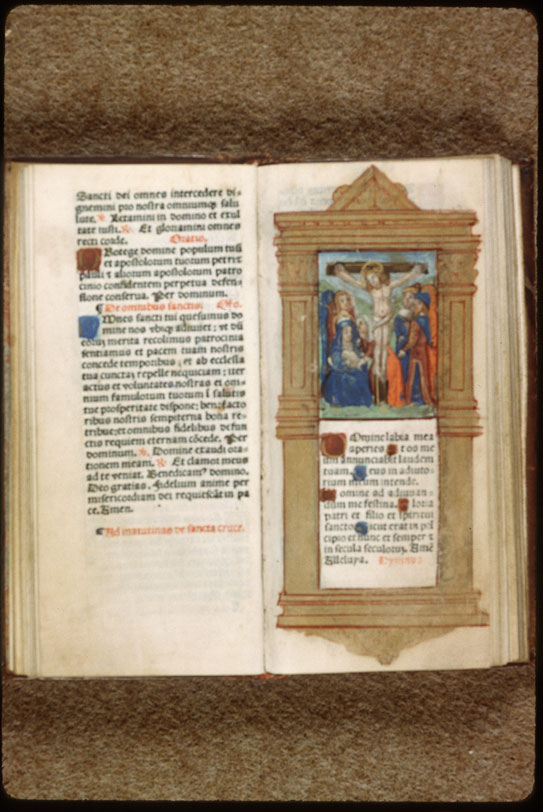 Sancti dei omnes intercedere di-
gnemini pro nostra omniumq; salu
lute. ℣. Letamini in domino et exul
tate iusti. ℟. Et gloriamini omnes
recti corde. Oratio.
Protege domine populum tuū
et apostolorum tuorum petri ⁊
pauli ⁊ aliorum apostolorum patro
cinio confidentem perpetua defen-
sione conserua. Per dominum.
¶ De omnibus sanctis. Oro.
Omnes sancti tui quesumus do
mine nos vbiq; adiuuet: vt dū
eorum merita recolimus patrocinia
sentiamus et pacem tuam nostris
concede temporibus: et ab ecclesia
tua cunctaz repelle nequiciam: iter
actus et voluntates nostras et om-
nium famulorum tuorum ī salutis
tue prosperitate dispone: benefacto
ribus nostris sempiterna bona re-
tribue: et omnibus fidelibus defun
ctis requiem eternam cōcede. Per
dominum. ℣. Domine exaudi ora-
tionem meam. ℟. Et clamor meus
ad te veniat. Benedicam⁹ domino.
Deo gratias. Fidelium anime per
misericordiam dei requiescāt in pa
ce. Amen.
¶ Ad matutinas de sancta cruce.
Domine labia mea
aperies Et os me
um annunciabit laudem
tuam. Deus in adiuto-
rium meum intende.
Domine ad adiuuan-
dum me festina. Gloria
patri et filio et spiritui
sancto Sicut erat in prī
cipio et nunc et semper ⁊
in secula seculorum. Amē
Alleluya. Hymnus